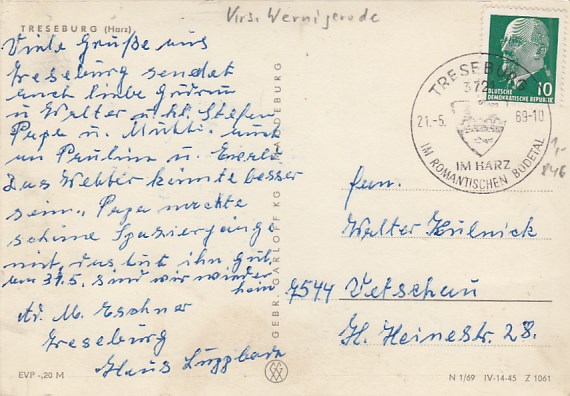 Krs. Wernigerode
TRESEBURG (Harz)
Viele Grüße aus
Treseburg sendet
euch liebe Gudrun
u Walter u. kl. Stefan
Papa u. Mutti. auch
an Paulina u.
Das Wetter könnte besser
sein, Papa machte
schöne Spaziergänge
mit, das tut ihn gut.
am 31.5. sind wir wieder
heim
Ad. M. Eschner
Treseburg
Haus
EVP -,20 M
GEBR. GARLOFF KG, MAGDEBURG
10
DEUTSCHE
DEMOKRATISCHE REPUBLIK
TRESEBURG
372
21.-5. 69-10
IM HARZ
IM ROMANTISCHEN BODETAL
1,-
846
Fam.
Walter
7544 Vetschau
H. Heinestr. 28.
N 1/69 IV-14-45 Z 1061